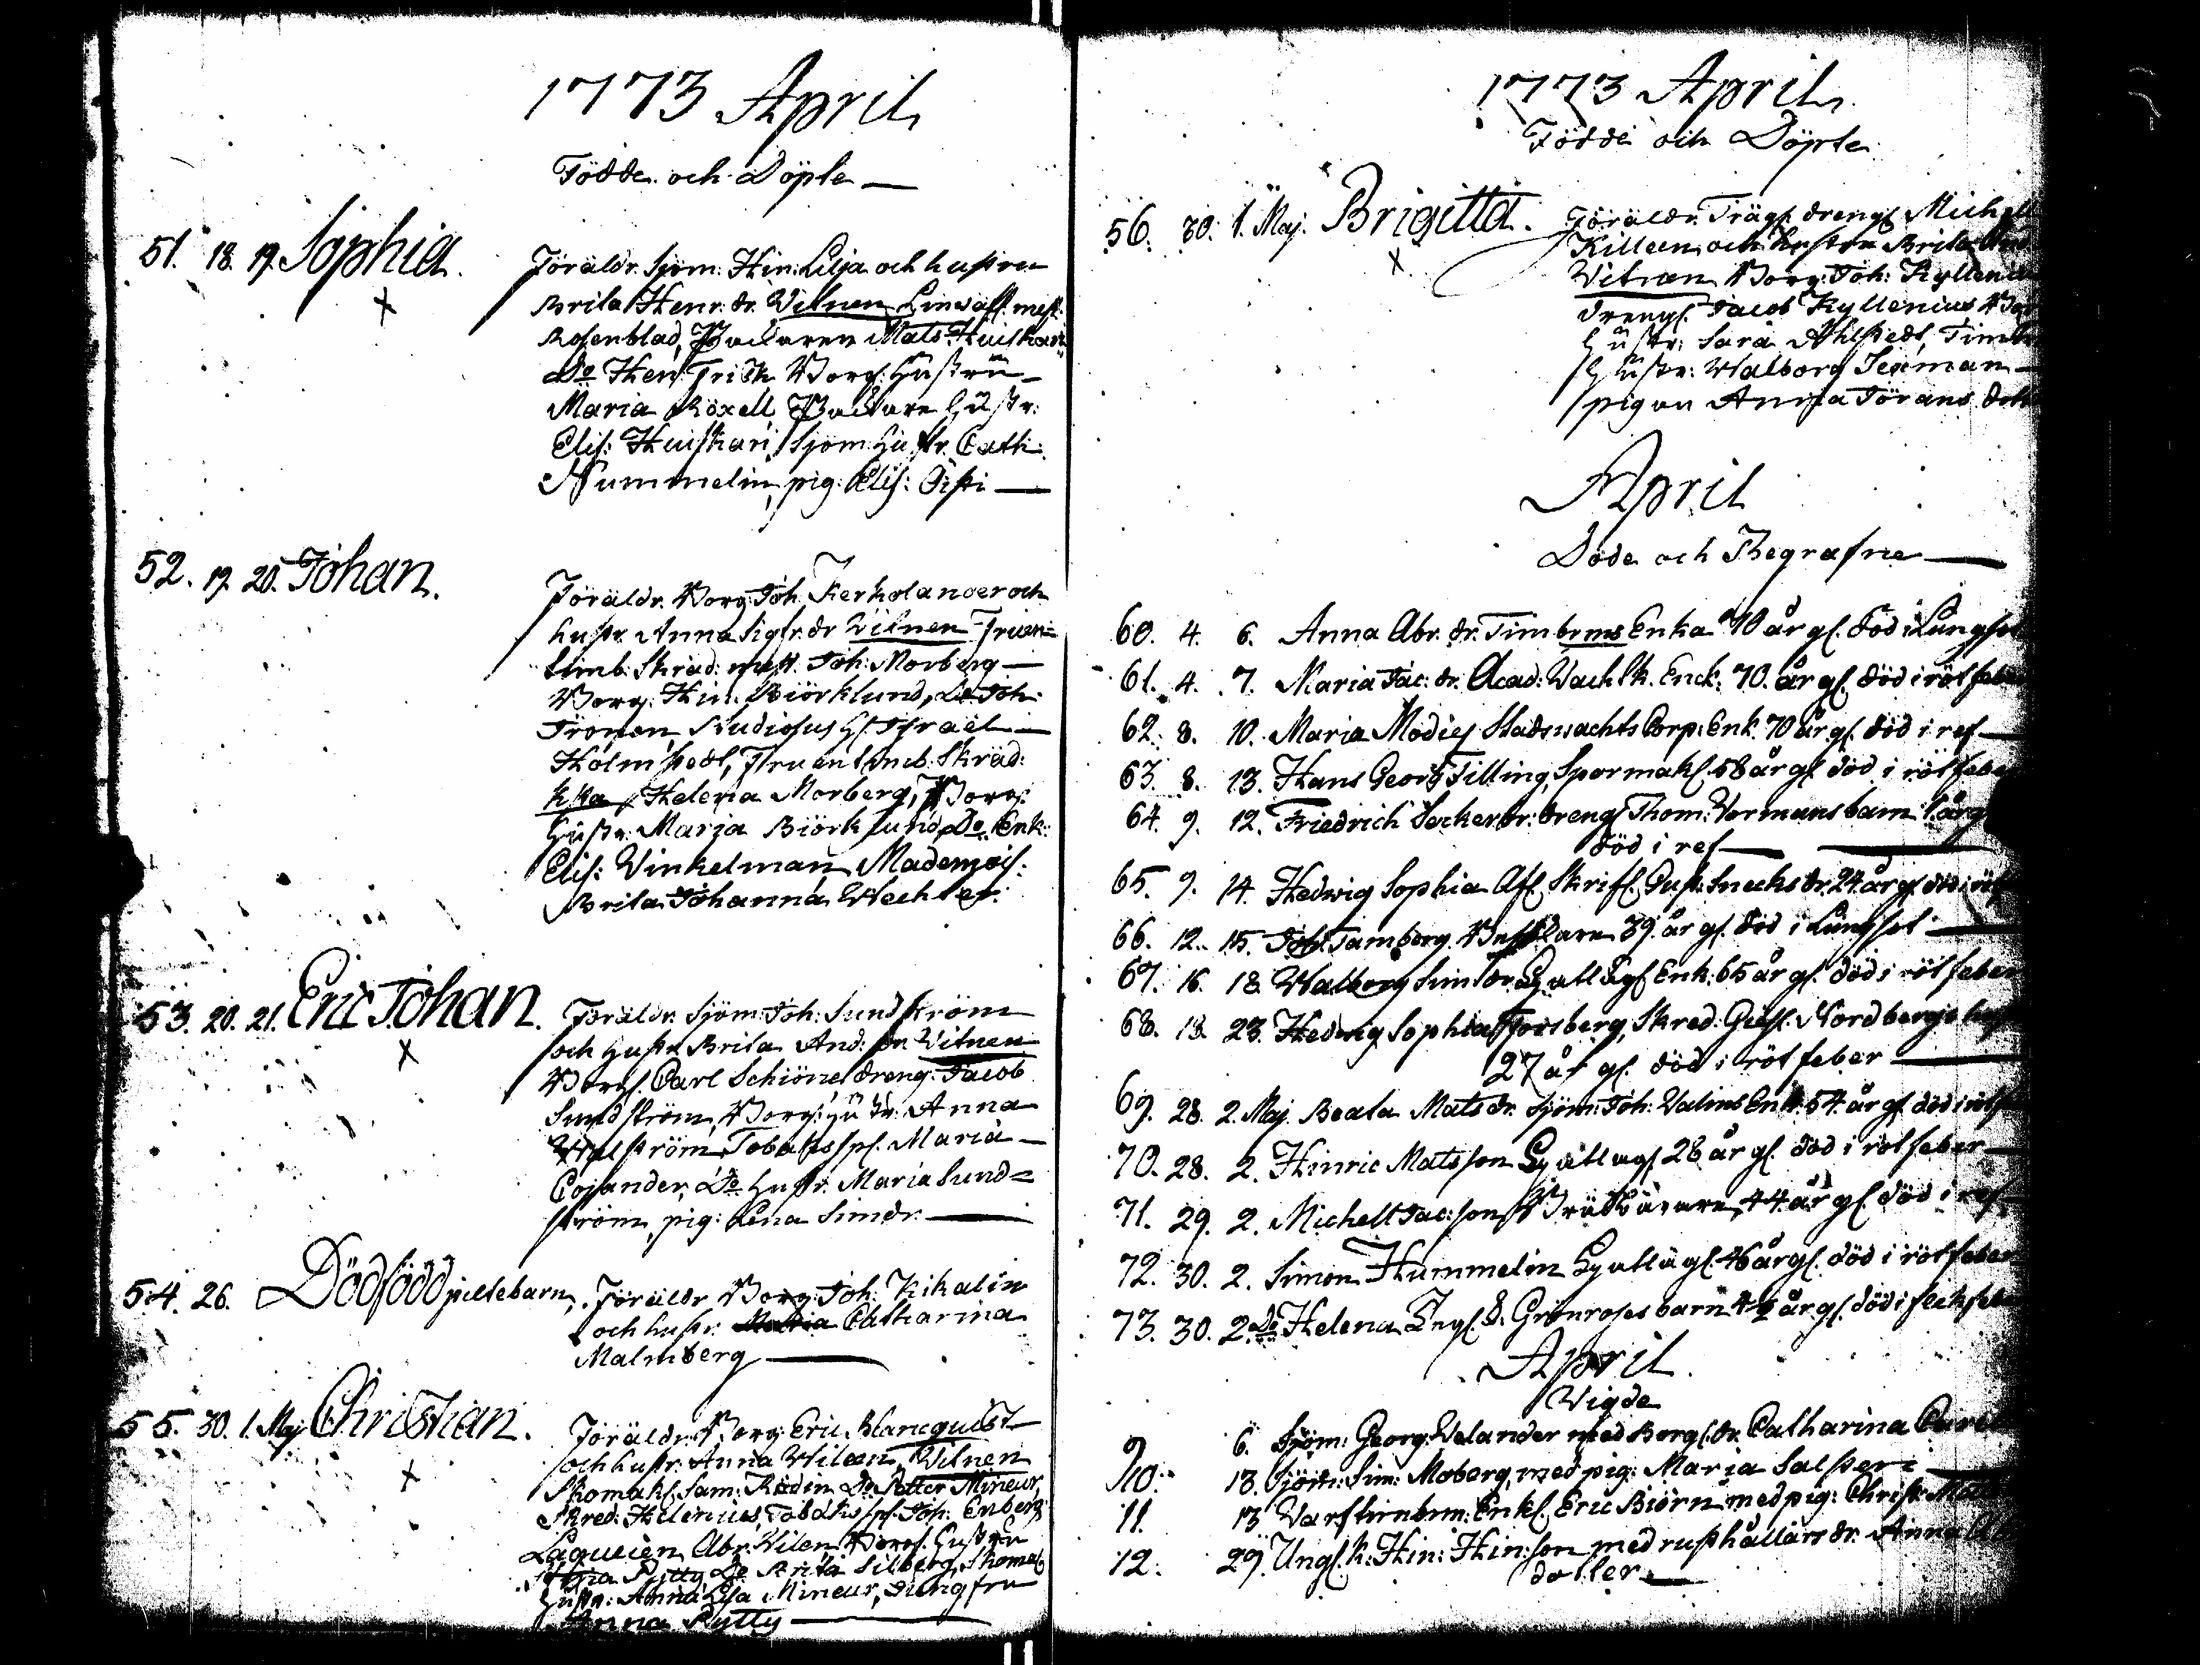 1773 April
Födde och Döpte
51. 18. 19. Sophia. Föräldr. Sjöm: Hin: Lilja och hustrun
Brita Henr: dr. Witnen Linwäff. mest:
Rosenblad, Packaren Mats Huiskari
Do Hen: Frisk Borg: Hustru
Maria Röxell, Packare Hustr:
Elis: Huiskari, Sjöm: Hustr. Cath:
Nummelin, pig: Elis:
52. 19. 20. Johan. Föräldr. Borg: Joh: Kerholander och
hustr. Anna Sigfr: dr Witnen Fruen=
timb: Skräd: mest. Joh: Morberg
Borg: Hin: Biörklund, Do Joh:
Trönen, Studiosus H. Israel
Holmstedt, Fruentimb: Skräd:
Helena Morberg, Borg:
Hustr: Maria Biörklund, Do Enk:
Elis: Winkelman Mademois:
Brita Johanna Wechter.
53. 20. 21. Eric Johan. Föräldr. Sjöm: Joh: Sundström
och Hustr. Brita And: dr. Witnen
Borg: Carl Schiöne dreng: Jacob
Sundström, Borg: Hustr: Anna
Tobakssp. Maria
Cojander, Do Hustr. Maria Sund=
ström, pig: Lena Sim: dr.
54. 26. Dödfödd piltebarn. Föräldr Borg: Joh: Kikalin
och hustr. Catharina
Malmberg
55. 30. 1. Maj Christian. Föräldr. Borg: Eric Blancquist
och hustr. Anna Wileen, Witnen
Skomak: Sam: Rödin Do Petter Mineur,
Skred: Helenius, Tobakssp. Joh: Enberg
Laqueien Abr: Wilen, Borg: Hustrun
Maria Pytty Do Brita Silberg, Skomak:
Hustr: Anna Lisa Mineur, Jungfru
Anna Pytty
1773 April
Födde och Döpte
56. 30. 1. Maj. Brigitta. Föräldr. Trägs. drengs Michell
Killeen och hustru Brita
Witnen Borg: Joh: Kyllenius
drengs. Jacob Kyllenius Borg
Hustr: Sara Ahlstedt, Timb
Hustr: Walborg Tenman
pigan Anna Törans
April
Döde och Begrafne
60. 4. 6. Anna Abr: dr. Timberms Enka 70 år gl. död i Lungsot
61. 4. 7. Maria Jac: dr. Acad: Wachtk. Enck: 70. år gl. död i rötfeber
62. 8. 10. Maria Modig Stadswachts Corp: Enk. 70 år gl. död i ref
63. 8. 13. Hans Georg Tilling, Sporrmak. 58 år gl. död i rötfeber
64. 9. 12. Friedrich Sockerbr: drengs Thom: Wormans barn 1. år gl
död i ref
65. 9. 14. Hedwig Sophia Afl. Skrifl. Gust: Snecks dr. 24. år gl. död i röt
66. 12. 15. Joh: Tamberg 39. år gl. död i Lungsot
67. 16. 18. Walborg Sim: dr Gatlägs Enk: 65 år gl. död i rötfeber
68. 18. 23. Hedwig Sophia Forsberg, Skred: Gies. Nordbergs hustr
27 år gl. död i rötfeber
69. 28. 2. Maj Beata Mats dr. Sjöm: Joh: Walins Enk. 54. år gl. död i röt
70. 28. 2. Hinric Matsson Gatlags 28 år gl. död i rötfeber
71. 29. 2. Michell Jac:son 44. år gl. död i ref
72. 30. 2. Simon Hummelin Gatlägs. 46 år gl. död i rötfeber
73. 30. 2. Do Helena Grönroses barn år gl. död i fleckfeb
April
Wigde
9 6. Sjöm: Georg Welander med Borg. dr. Catharina
10. 13. Sjöm: Sim: Moberg, med pig: Maria Salster
11. 13 Warftimbrm: Enkl. Eric Biörn med pig: Christ:
12. 29. Ungs. k: Hin: Hin:son med rusthållars dr. Anna
dotter